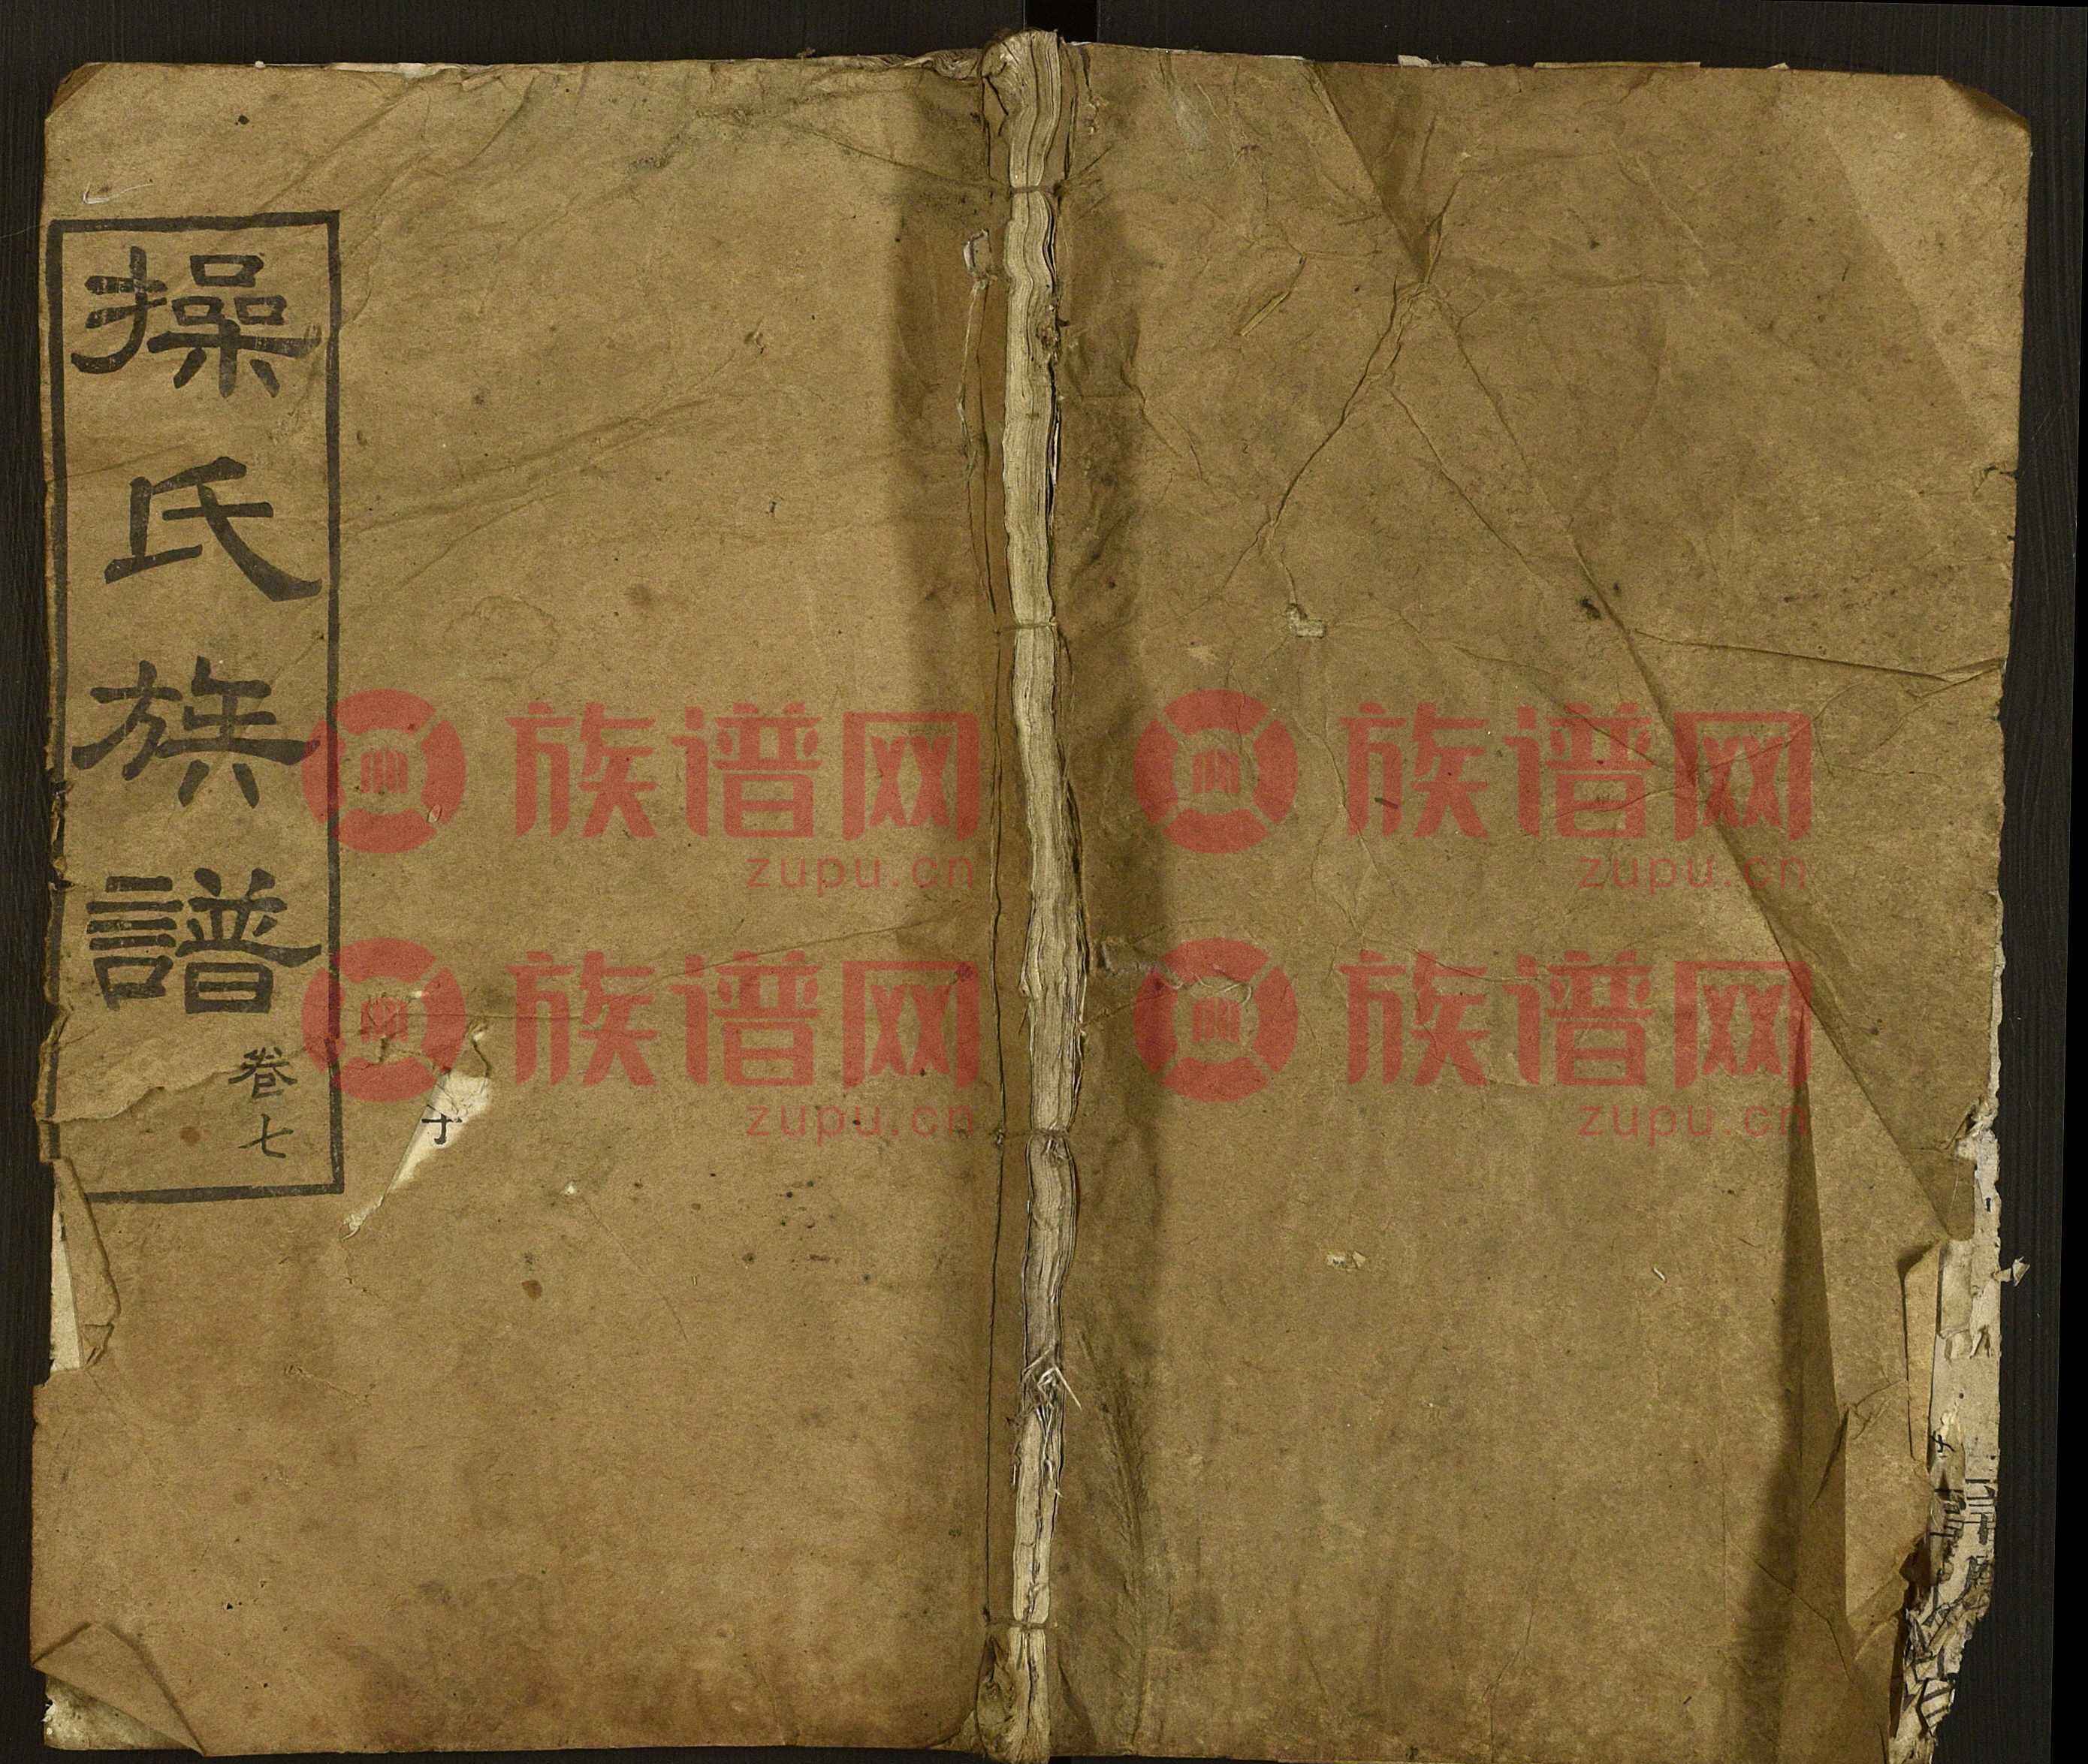 操氏族譜
卷七
族谱网 族谱网
zupu.cn zupu.cn
族谱网 族谱网
zupu.cn zupu.cn